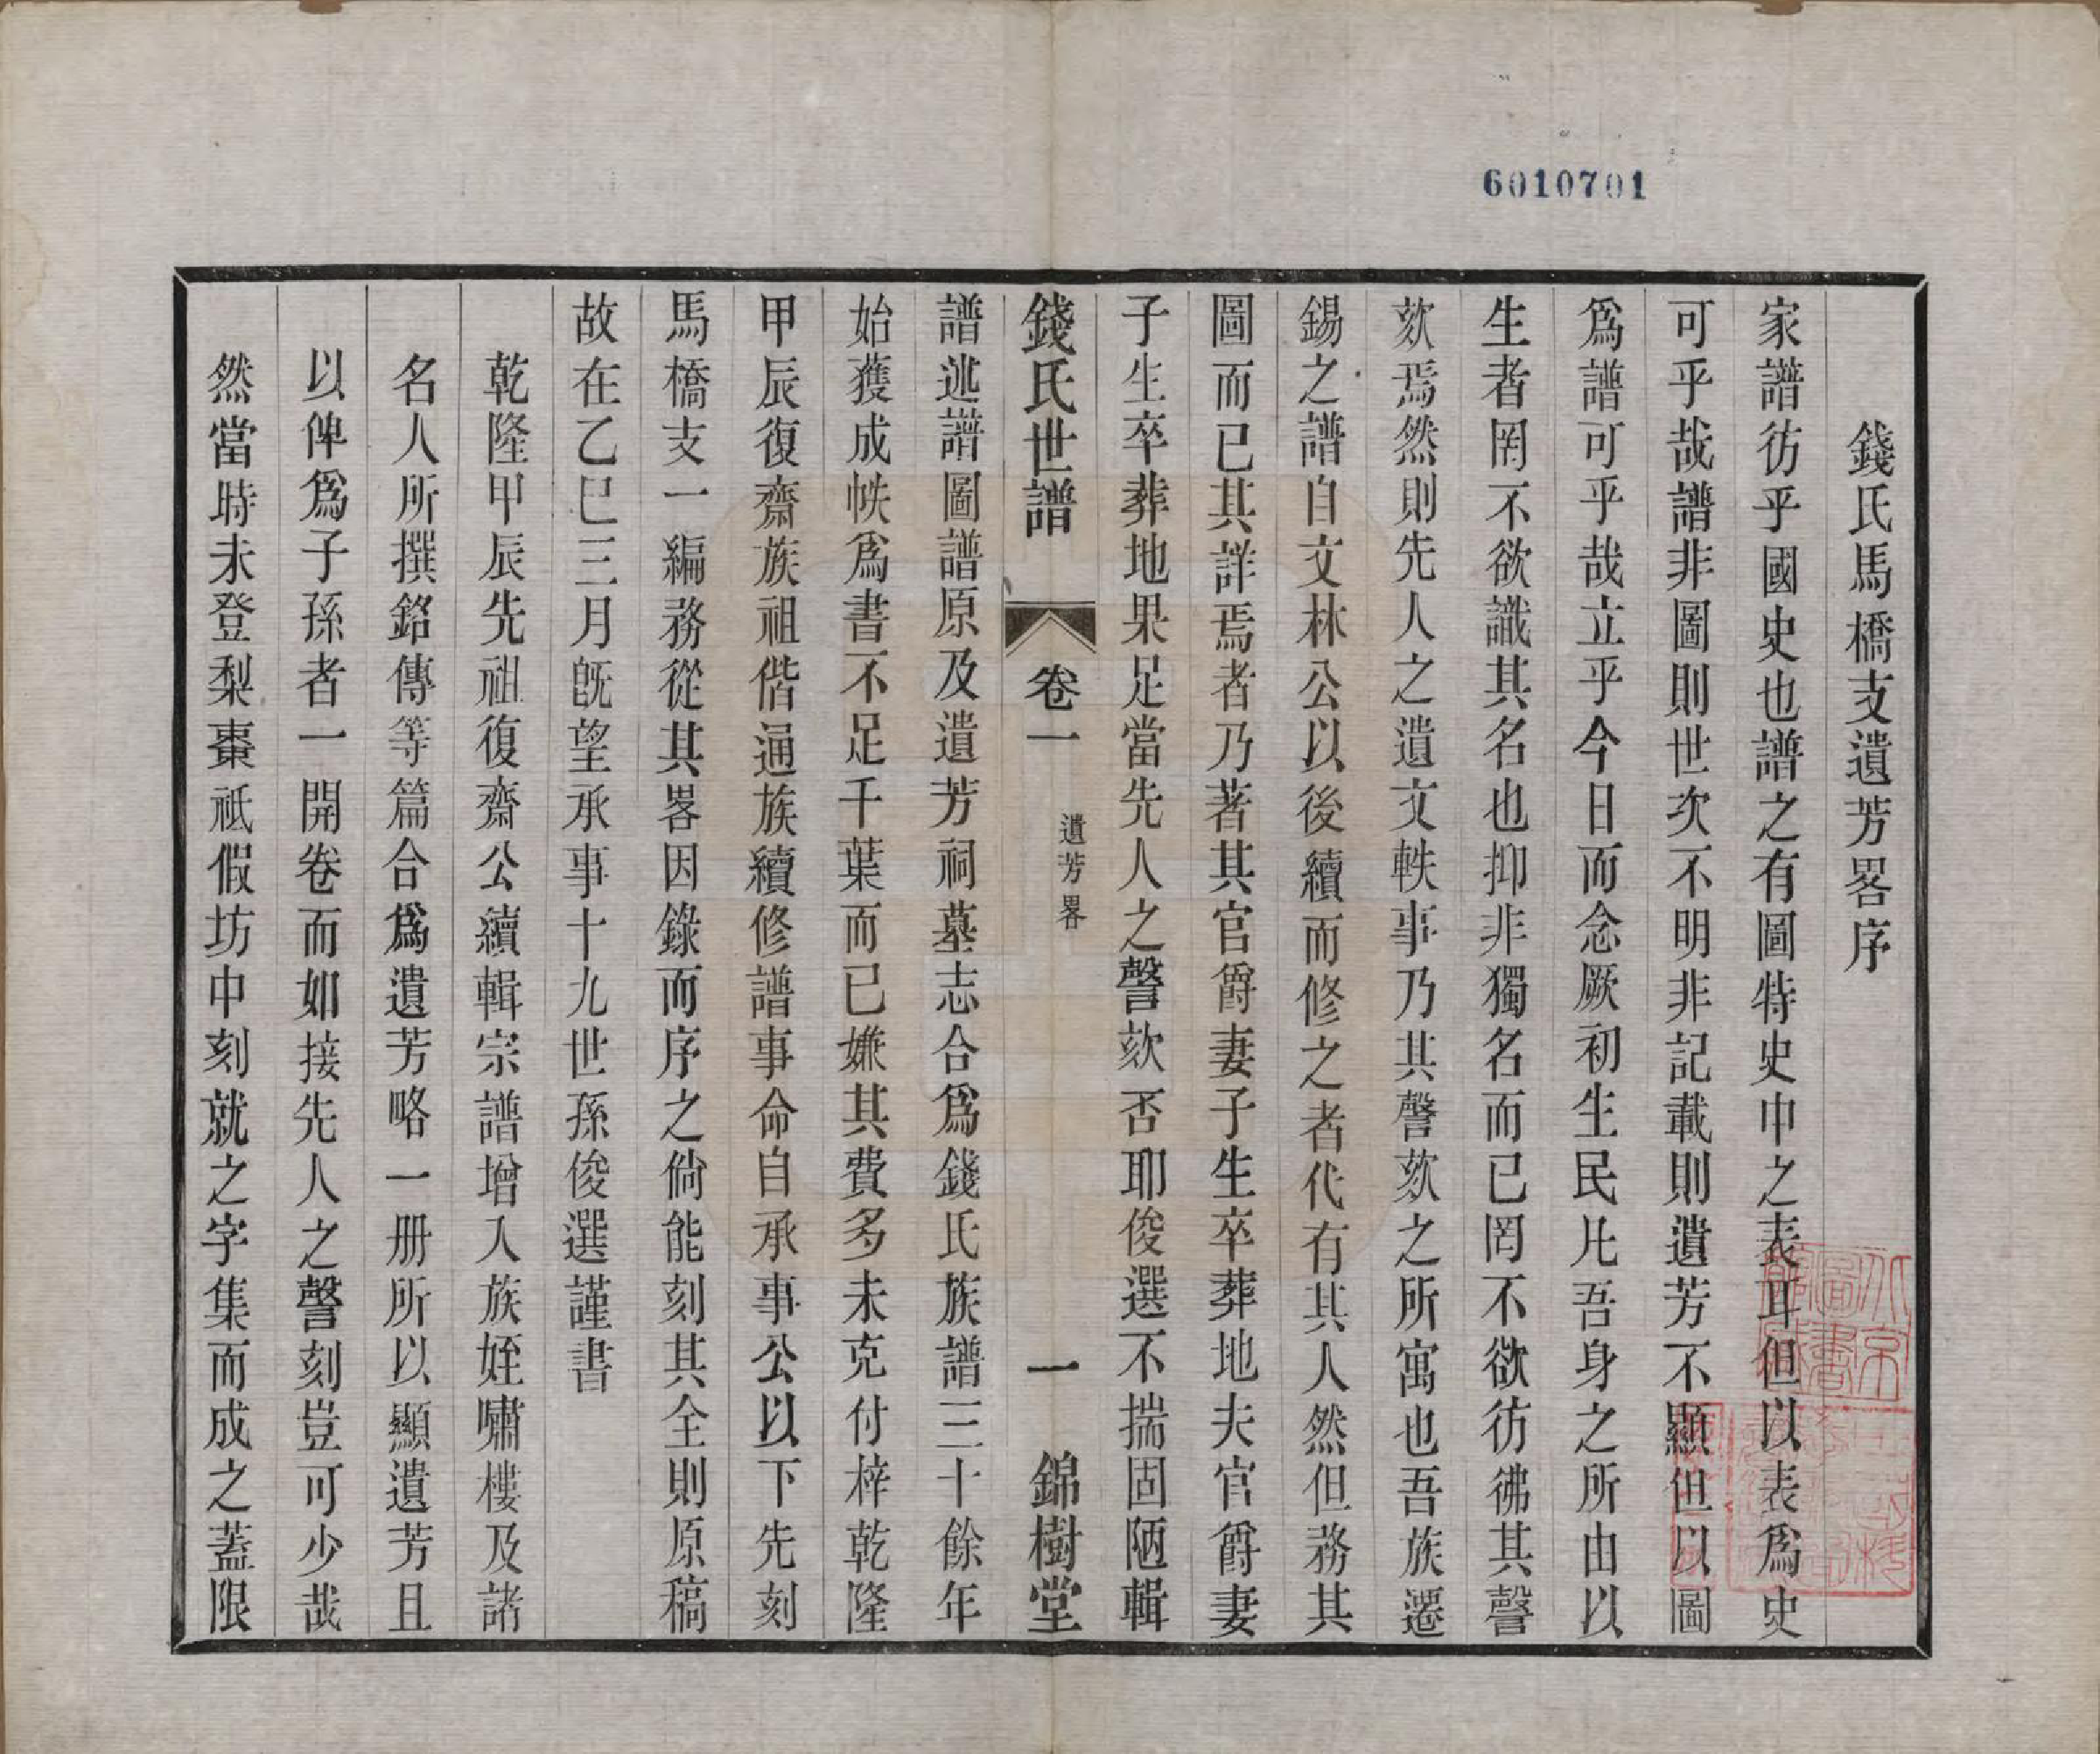 6010701
錢氏馬橋支遺芳畧序
家譜彷乎國史也譜之有圖特史中之表耳但以表爲史
可乎哉譜非圖則世次不明非記載則遺芳不顯但以圖
爲譜可乎哉立乎今日而念厥初生民凡吾身之所由以
生者罔不欲識其名也抑非獨名而已罔不欲彷彿其謦
欬焉然則先人之遺文軼事乃其謦欬之所寓也吾族遷
錫之譜自文林公以後續而修之者代有其人然但務其
圖而已其詳焉者乃著其官爵妻子生卒葬地夫官爵妻
子生卒葬地果足當先人之謦欬否耶俊選不揣固陋輯
錢氏世譜 卷一 遺芳畧 一 錦樹堂
譜述譜圖譜原及遺芳祠墓志合爲錢氏族譜三十餘年
始獲成帙爲書不足千葉而已嫌其費多未克付梓乾隆
甲辰復齋族祖偕通族續修譜事命自承事公以下先刻
馬橋支一編務從其畧因錄而序之倘能刻其全則原稿
故在乙巳三月旣望承事十九世孫俊選謹書
乾隆甲辰先祖復齋公續輯宗譜增入族姪嘯樓及諸
名人所撰銘傳等篇合爲遺芳略一册所以顯遺芳且
以俾爲子孫者一開卷而如接先人之謦刻豈可少哉
然當時未登梨棗祗假坊中刻就之字集而成之蓋限